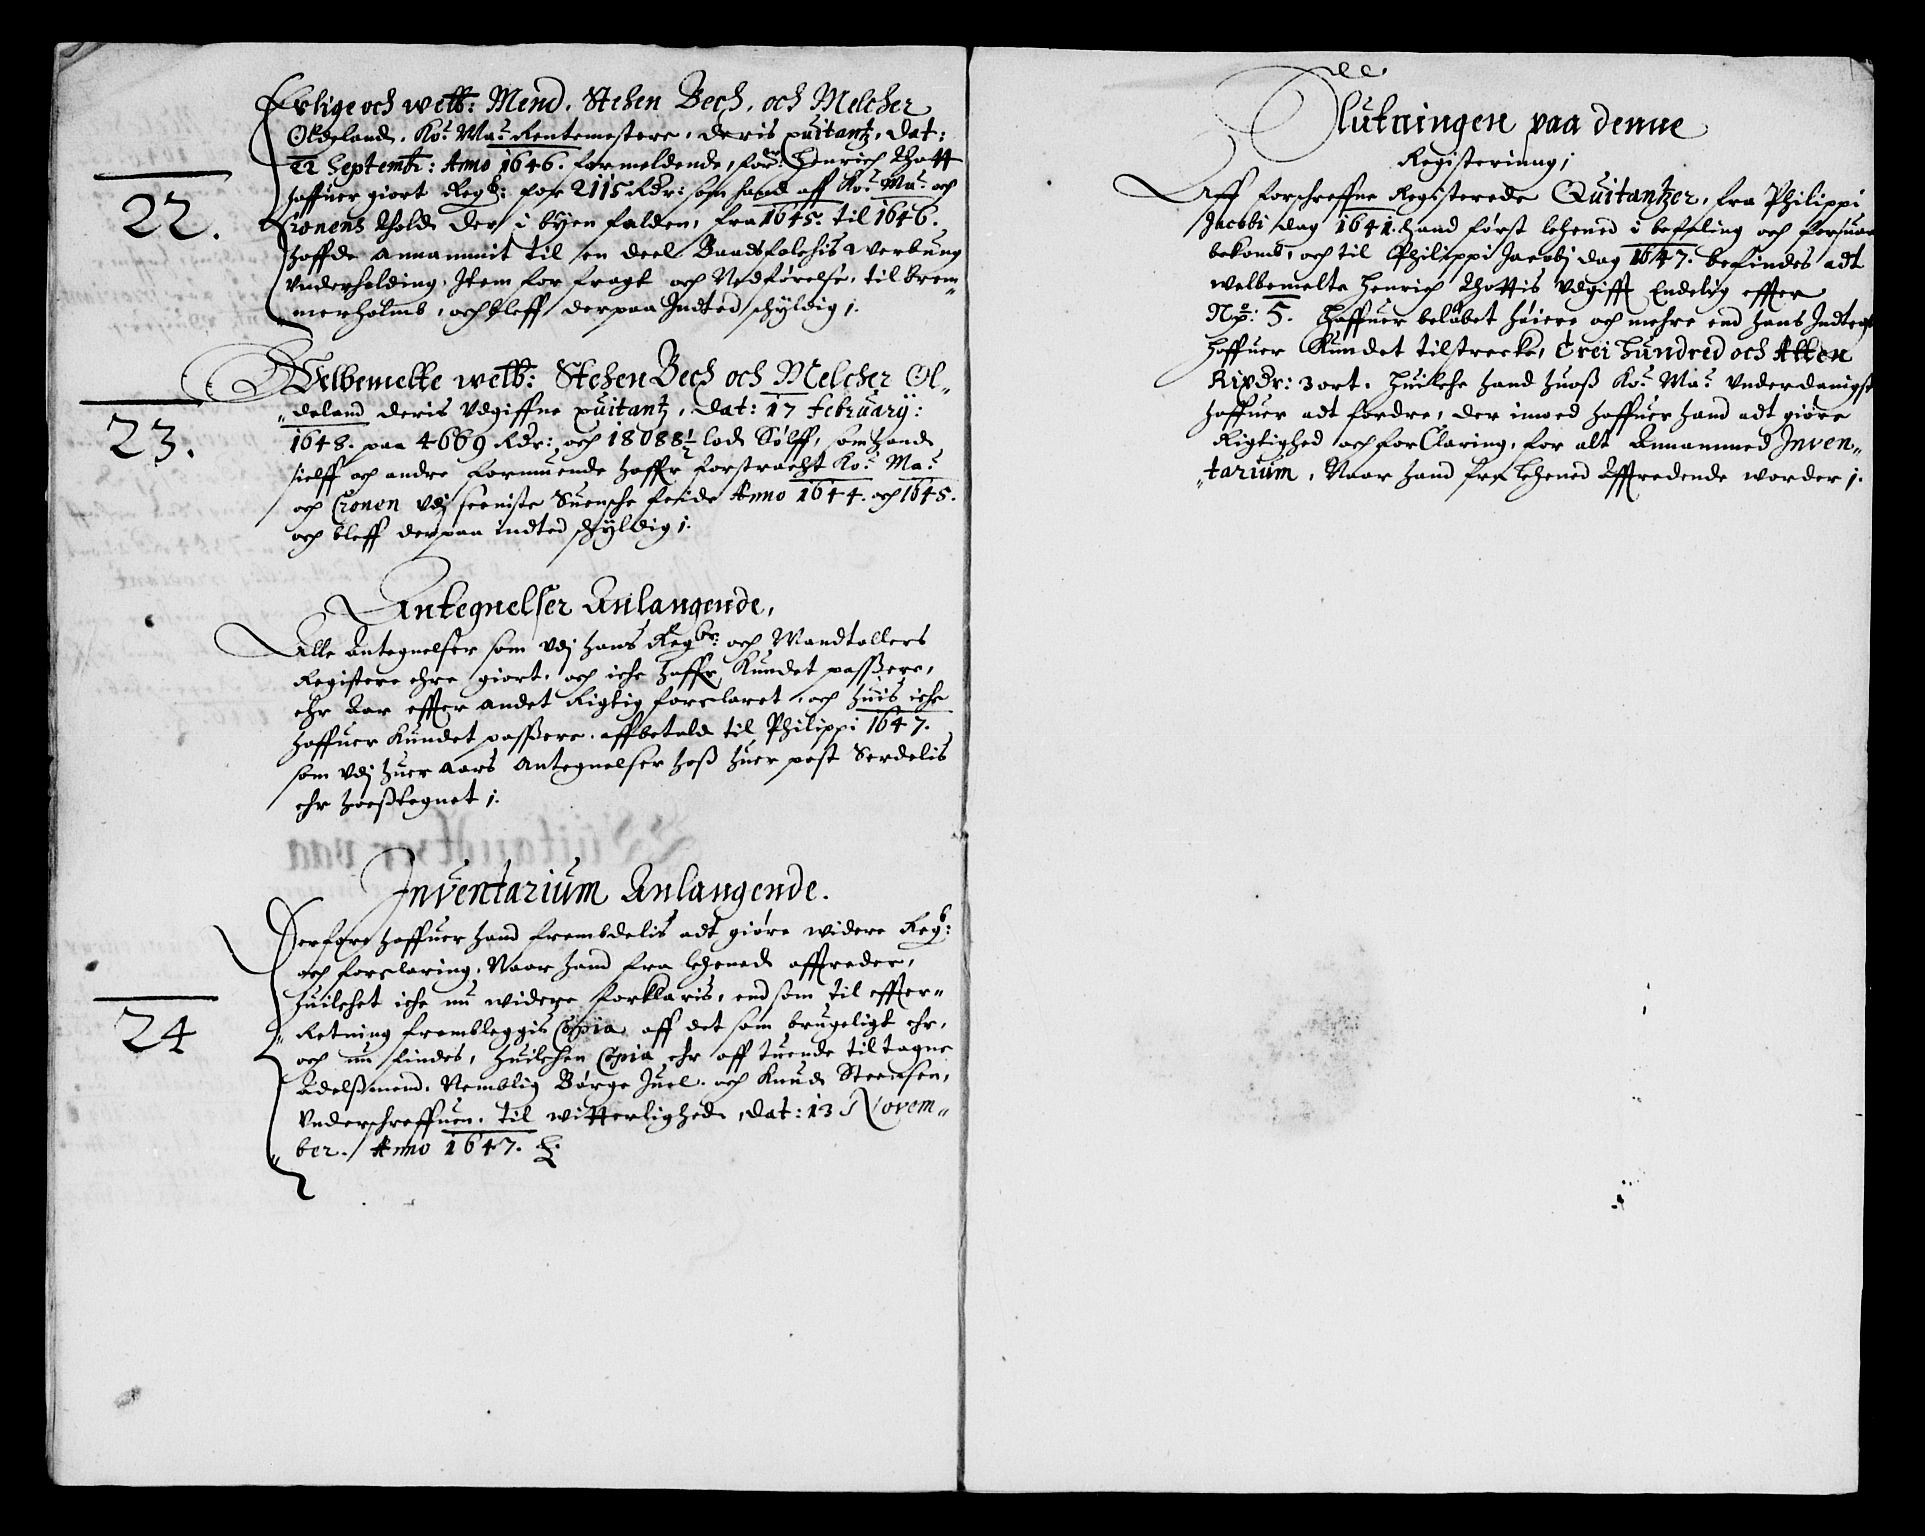 Erlige och welb: Mend. Stehen Bech, och Melcher
Oldeland, Ko: Ma: Rentemestere, deris quitantz, dat:
22 Septemb: Anno 1646. formeldende, for: Henrich Thott
haffuer giort Regb: for 2115 Rdr: som hand aff Ko: Ma: och
22. Cronens Thold der i byen falden, fra 1645. til 1646.
haffde annammit til en deel Baadsfolchis Verbung
Underholding, Item for fragt och Nedførelse, til Brem„
„merholmb, och bleff derpaa Indted schyldig j.
Velbemelte welb: Stehen Bech och Melcher Ol„
„deland deris Udgiffne quitantz, dat: 17 February:
23. 1648. paa 4669 Rdr: och 18088½ lod Sølff, som hand
sielff och andre formuende haffr forstracht Ko: Ma:
och Cronen udj seeniste Suensche feide Anno 1644. och 1645.
och bleff derpaa indted schyldig j.
Antegnelser Anlangende,
Alle Antegnelser som udj hans Regbr: och Mandtallers
Registere ehre giort, och iche haffr Kundet passere,
ehr Aar effter andet Rigtig forclaret, och huis iche
haffuer Kundet passere, affbetald til Philippi 1647.
som udj huer Aars Antegnelser hoß huer post Serdelis
ehr hoeßtegnet j.
Inventarium Anlangende.
Derfore haffuer hand frembdelis adt giøre widere Regb:
och forclaring, Naar hand fra Lehened afftreder,
huilchet iche nu widere forklaris, end som til effter„
24 „Retning frembleggis Copia aff det som brugeligt ehr,
och nu findes, huilchen Copia ehr aff tuende tiltagne
Adelßmend, Nemblig Børge Juel, och Knud Steensen,
Underschreffuen, til witterlighed, dat: 13 Novem„
„ber. Anno 1647.
Slutningen paa denne
Registering j
Aff forschreffne Registerede Quitantzer, fra Philippi
Jacobi dag 1641. hand først Lehened i befaling och forsuar
bekomb, och til Philippi Jacobi dag 1647. befindes adt
welbemelte Henrich Thottis Udgifft Endelig effter
No: 5. haffuer beløbet høiere och mehre end hans Indtegt
haffuer Kundet tilstrecke, Trei Hundred och Atten
Rixdr: 3 ort. Huilche hand huoß Ko: Ma: Underdanigst
haffuer adt fordre, der imoed haffuer hand adt giøre
Rigtighed och forClaring, for alt Annammed Inven„
„tarium, Naar hand fra Lehened Afftredende worder j.